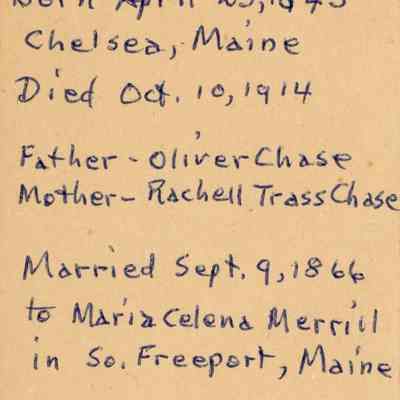 Born April 25, 1843
Chelsea, Maine
Died Oct. 10, 1914
Father - Oliver Chase
Mother - Rachell Trass Chase
Married Sept. 9, 1866
to Maria Celena Merrill
in So. Freeport, Maine